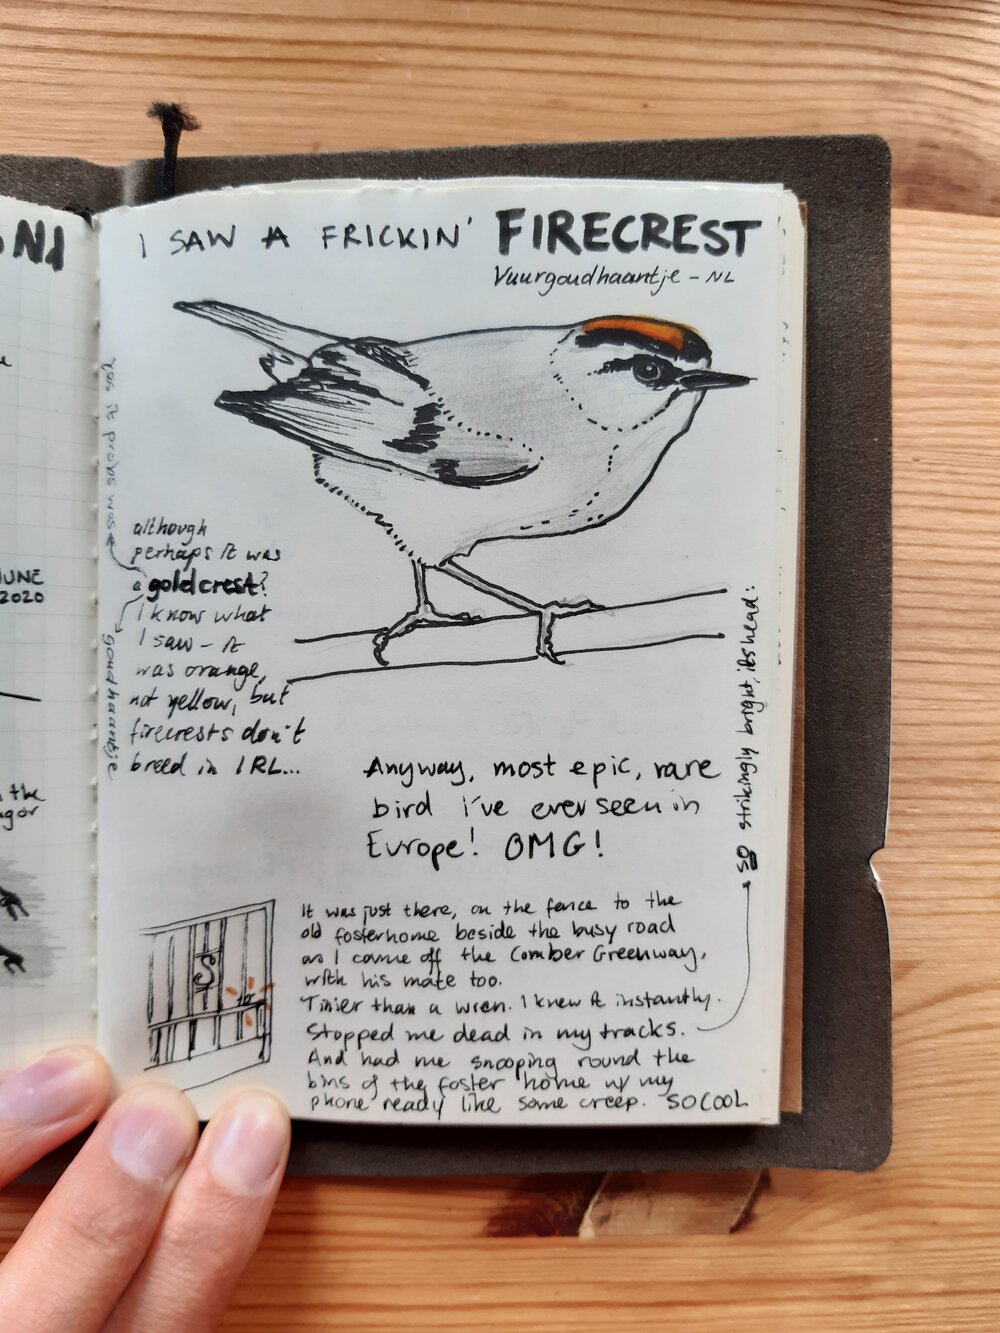 I SAW A FRICKIN' FIRECREST
Vuurgoudhaantje - NL
although
perhaps it was
a goldcrest?
I know what
I saw - it
was orange,
not yellow, but
firecrests don't
breed in IRL...
yes it probs was
goudhaantje
Anyway, most epic, rare
bird i've ever seen in
Europe! OMG!
It was just there, on the fence to the
old fosterhome beside the busy road
as I came off the Comber Greenway,
with his mate too.
Tinier than a wren. I knew it instantly.
Stopped me dead in my tracks.
And had me snooping round the
bins of the foster home w/ my
phone ready like some creep. SO COOL
SO strikingly bright, its head:
S
NI
JUNE
2020
the